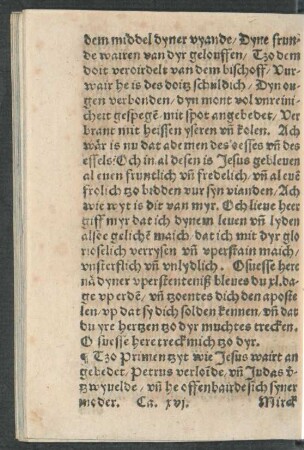 dem middel dyner vyande/ Dyne frun-
de wairen van dyr gelouffen/ Tzo dem
doit veroirdelt van dem bischoff/ Vur-
wair he is des doitz schuldich/ Dyn ou-
gen verbonden/ dyn mont vol vnreini
cheit gespegẽ mit spot angebedet/ Ver
brant mit heissen yseren vñ kolen. Ach
wår is nu dat ademen des oesses vñ des
essels/ Och in al desen is Jesus gebleuen
al euen fruntlich vñ fredelich/ vñ al euẽ
frolich tzo bidden vur syn vianden/ Ach
wie wyt is dit van myr. Och lieue heer
giff myr dat ich dynem leuen vñ lyden
alsoe gelichẽ maich/ dat ich mit dyr glo
rioselich verrysen vñ vperstain maich/
vnsterflich vñ vnlydlich. Osuesse here
nå dyner vperstenteniß bleues du xl. da-
ge vp erdẽ/ vñ tzoentes dich den aposte
len/ vp dat sy dich solden kennen/ vñ dat
du yre hertzen tzo dyr muchtes trecken.
O suesse here treck mich tzo dyr.
¶ Tzo Primen tzyt wie Jesus wairt an
gebedet/ Petrus verloïde/ vñ Judas v̈-
tzwyuelde/ vñ he offenbairde sich syner
moder. Ca. xvj. Mirck